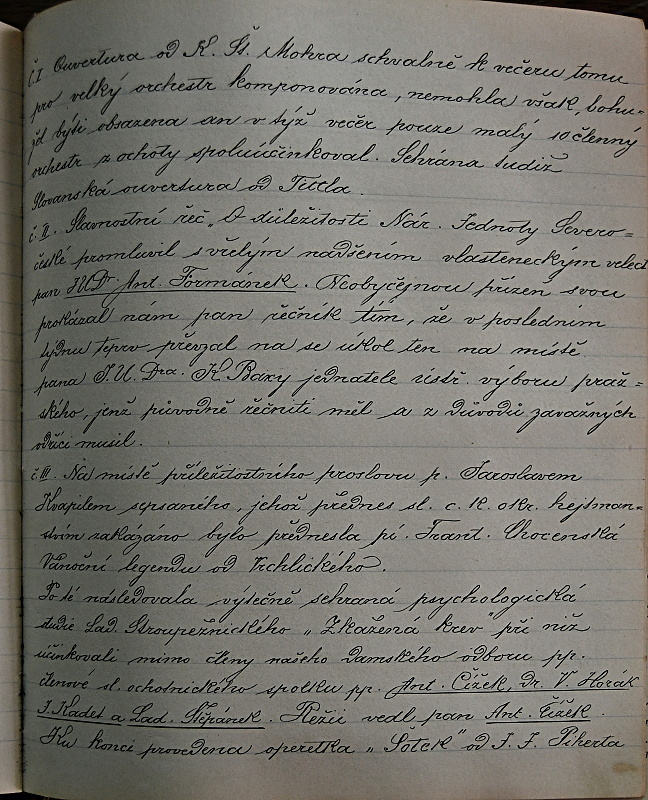 č. I Ouvertura od K. Št. Mokra schvalně k večeru tomu
pro velký orchestr komponována, nemohla však, bohu-
žel býti obsazena an v týž večer pouze malý 10členný
orchestr z ochoty spoluúčinkoval. Sehrána tudíž
Slovanská ouvertura od Tittla.
č. II. Slavnostní řeč „O důležitosti Nár. Jednoty Severo=
české promluvil s vřelým nadšením vlasteneckým velect
pan JUDr. Ant. Formánek. Neobyčejnou přízeň svou
prokázal nám pan řečník tím, že v posledním
týdnu teprv převzal na se úkol ten na místě
pana J.U.Dra. K Baxy jednatele ústř. výboru praž=
ského, jenž původně řečniti měl a z důvodů závažných
odříci musil.
č. III. Na místě příležitostního proslovu p. Jaroslavem
Kvapilem sepsaného, jehož přednes sl. c. k. okr. hejtman=
stvím zakázáno bylo přednesla pí. Frant. Chocenská
Vánoční legendu od Vrchlického.
Po té následovala výtečně sehraná psychologická
studie Lad. Stroupežnického „Zkažená krev" při níž
účinkovali mimo členy našeho Damského odboru pp.
členové sl. ochotnického spolku pp. Ant. Čížek, Dr. V. Horák
J. Kadet a Lad. Štěpánek. Režii vedl pan Ant. Čížek.
Ku konci provedena operetka „Šotek" od J. J. Piherta